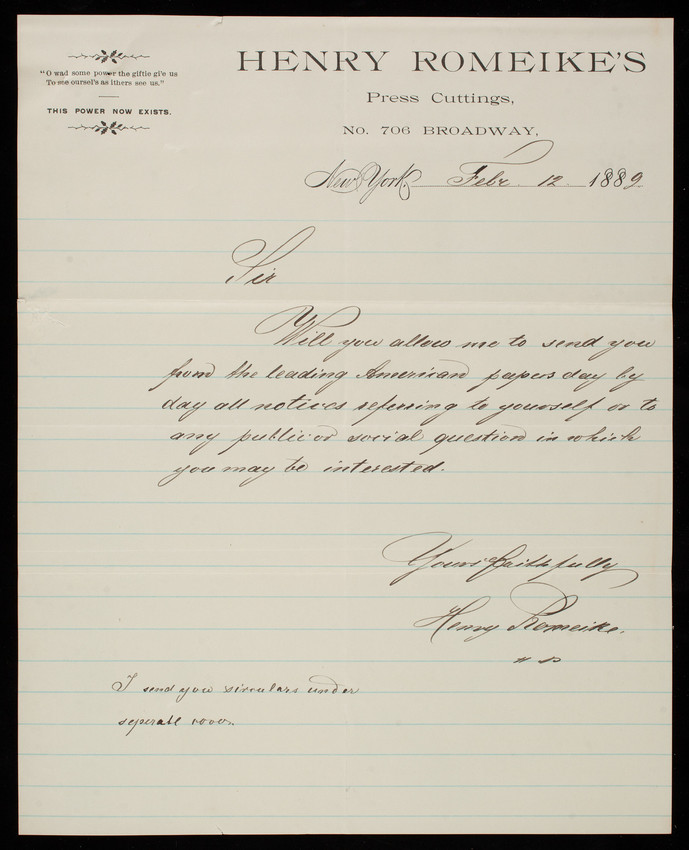 "O wad some power the giftie gi'e us
To see oursel's as ithers see us."
THIS POWER NOW EXISTS.
HENRY ROMEIKE'S
Press Cuttings,
No. 706 BROADWAY,
New York, Febr. 12. 1889.
Sir
Will you allow me to send you
from the leading American papers day by
day all notices referring to yourself or to
any public or social question in which
you may be interested.
Yours faithfully
Henry Romeike.
I send you circulars under
seperate cover.